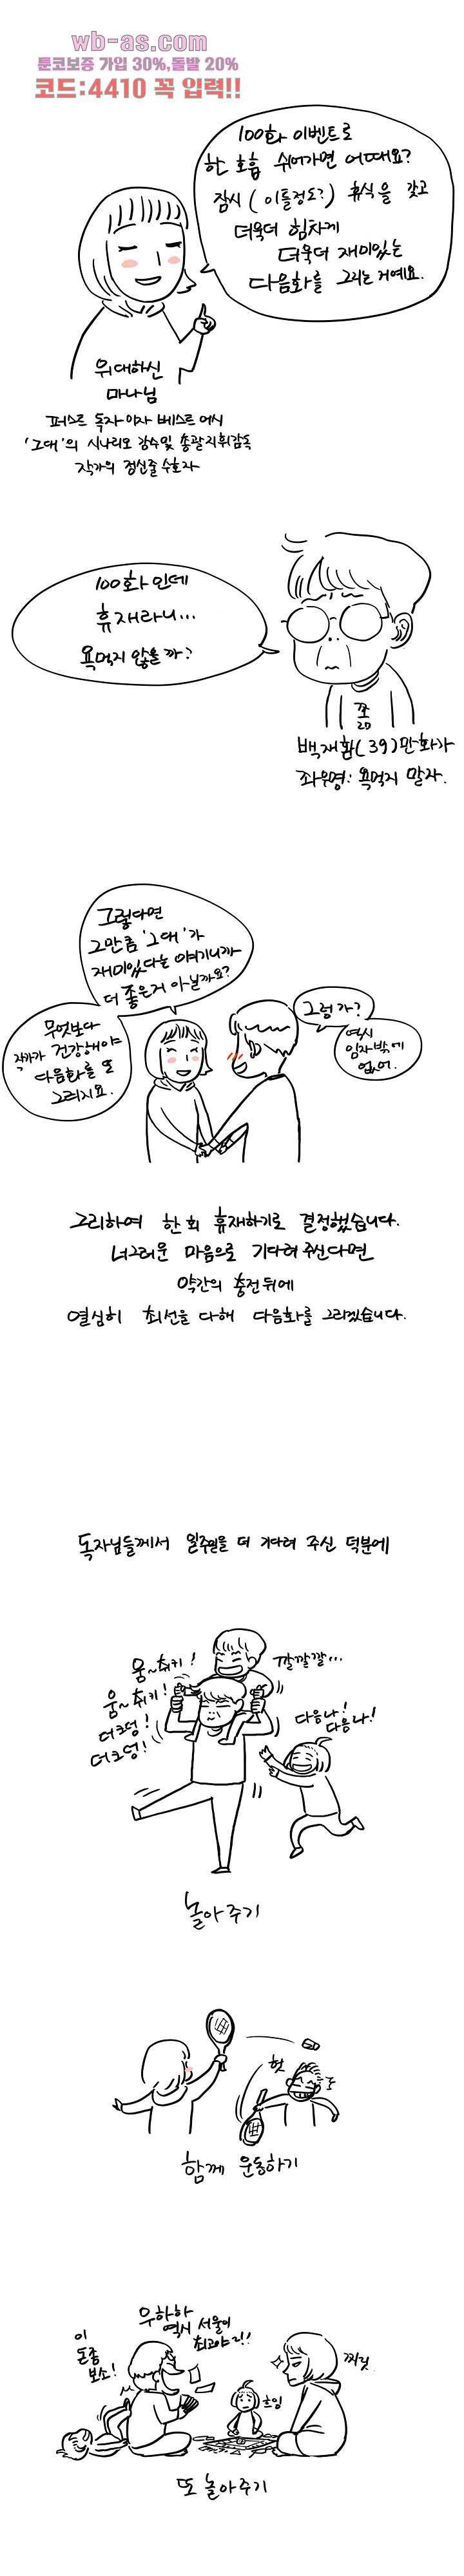 wb-as.com
툰코보증 가입 30%,돌발 20%
코드:4410 꼭 입력!!
100화 이벤트로
한 호흡 쉬어가면 어때요?
잠시 (이틀정도?) 휴식을 갖고
더욱더 힘차게
더욱더 재미있는
다음화를 그리는거예요.
위대하신
마나님
퍼스트 독자이자 베스트 어시
'그대'의 시나리오 감수및 총괄지휘감독
작가의 정신줄 수호자
100화인데
휴재라니...
욕먹지 않을까?
쪼
20
백재환(39)만화가
좌우명: 욕먹지 말자.
그렇다면
그만큼 '그대'가
재미있다는 얘기니까
더 좋은거 아닐까요?
무엇보다
작가가 건강해야
다음화를 또
그리지요.
그런가?
역시
임자밖에
없어.
그리하여 한회 휴재하기로 결정했습니다.
너그러운 마음으로 기다려주신다면
약간의 충전뒤에
열심히 최선을 다해 다음화를 그리겠습니다.
독자님들께서 일주일을 더 기다려 주신 덕분에
움~취키!
움~취키!
더크덩!
더크덩!
깔깔깔...
다음나!
다음나!
놀아주기
헛
함께 운동하기
이
돈좀
보소!
우하하
역시 서울이
최고야!!
흐잉
찌릿
또 놀아주기